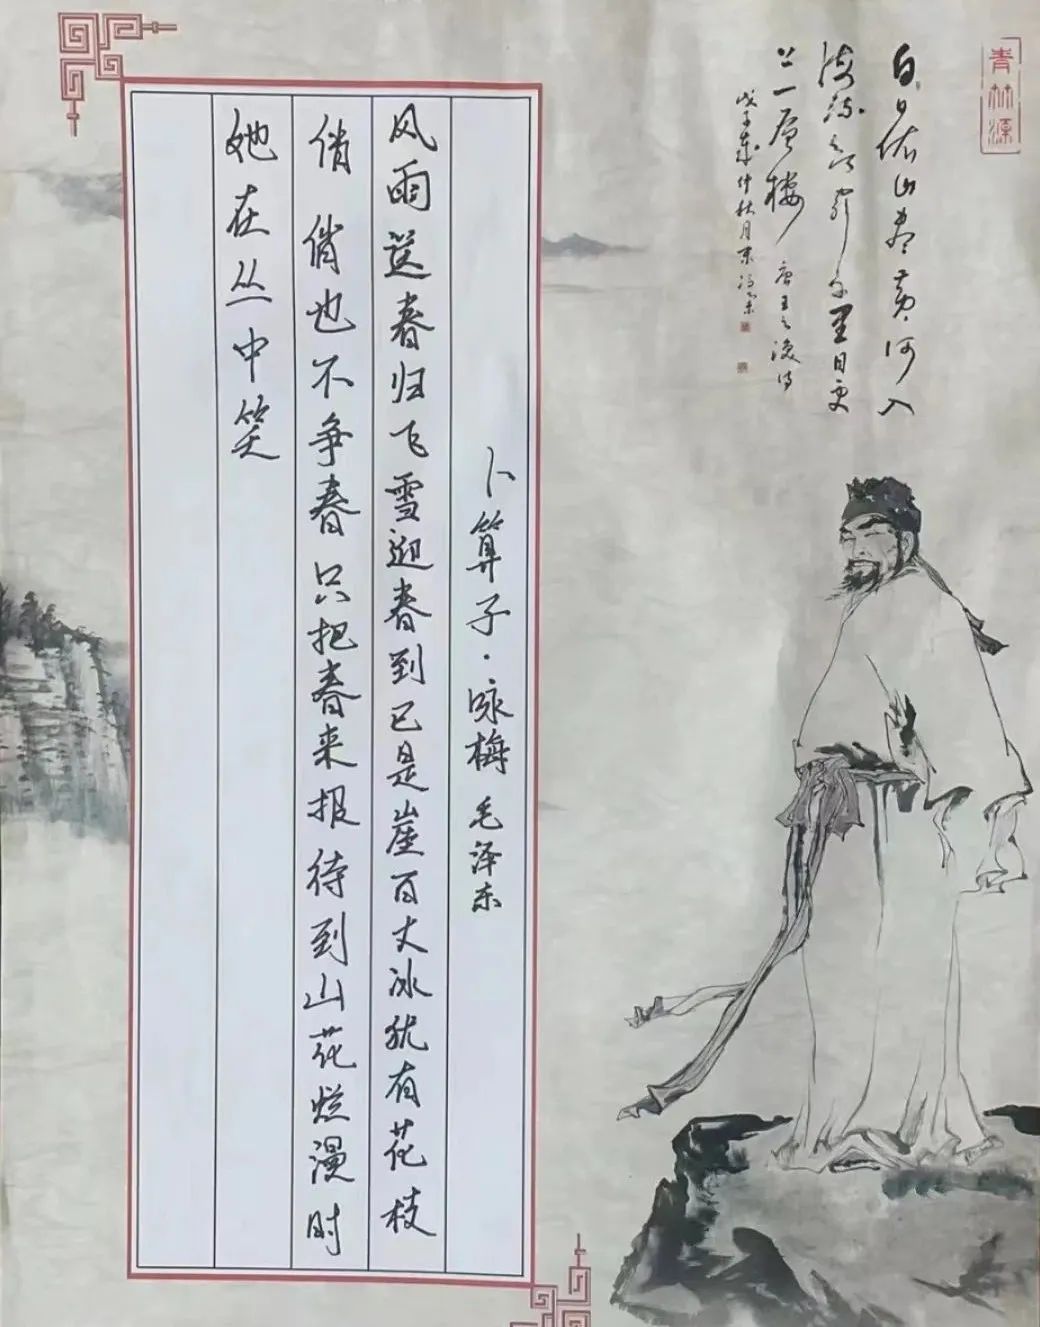 青林源
白日依山尽黄河入
海流欲穷千里目更
上一层楼 唐王之涣诗
戊子岁仲秋月
卜算子·咏梅 毛泽东
风雨送春归飞雪迎春到已是崖百丈冰犹有花枝
俏 俏也不争春只把春来报待到山花烂漫时
她在丛中笑